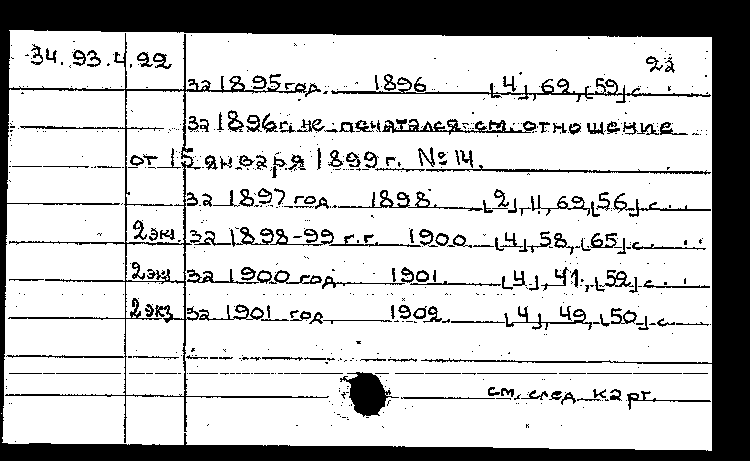 34.93.4.22
22
за 1895 год. 1896 [4], 62, [59] с.
за 1896 г. не печатался см. отношение
от 15 января 1899 г. № 14.
за 1897 год 1898. [2], 11, 69, [56] с.
2экз за 1898-99 г.г. 1900 [4], 58, [65] с.
2экз за 1900 год. 1901. [4], 41, [52] с.
2экз за 1901 год. 1902. [4], 49, [50] с.
см. след. карт.